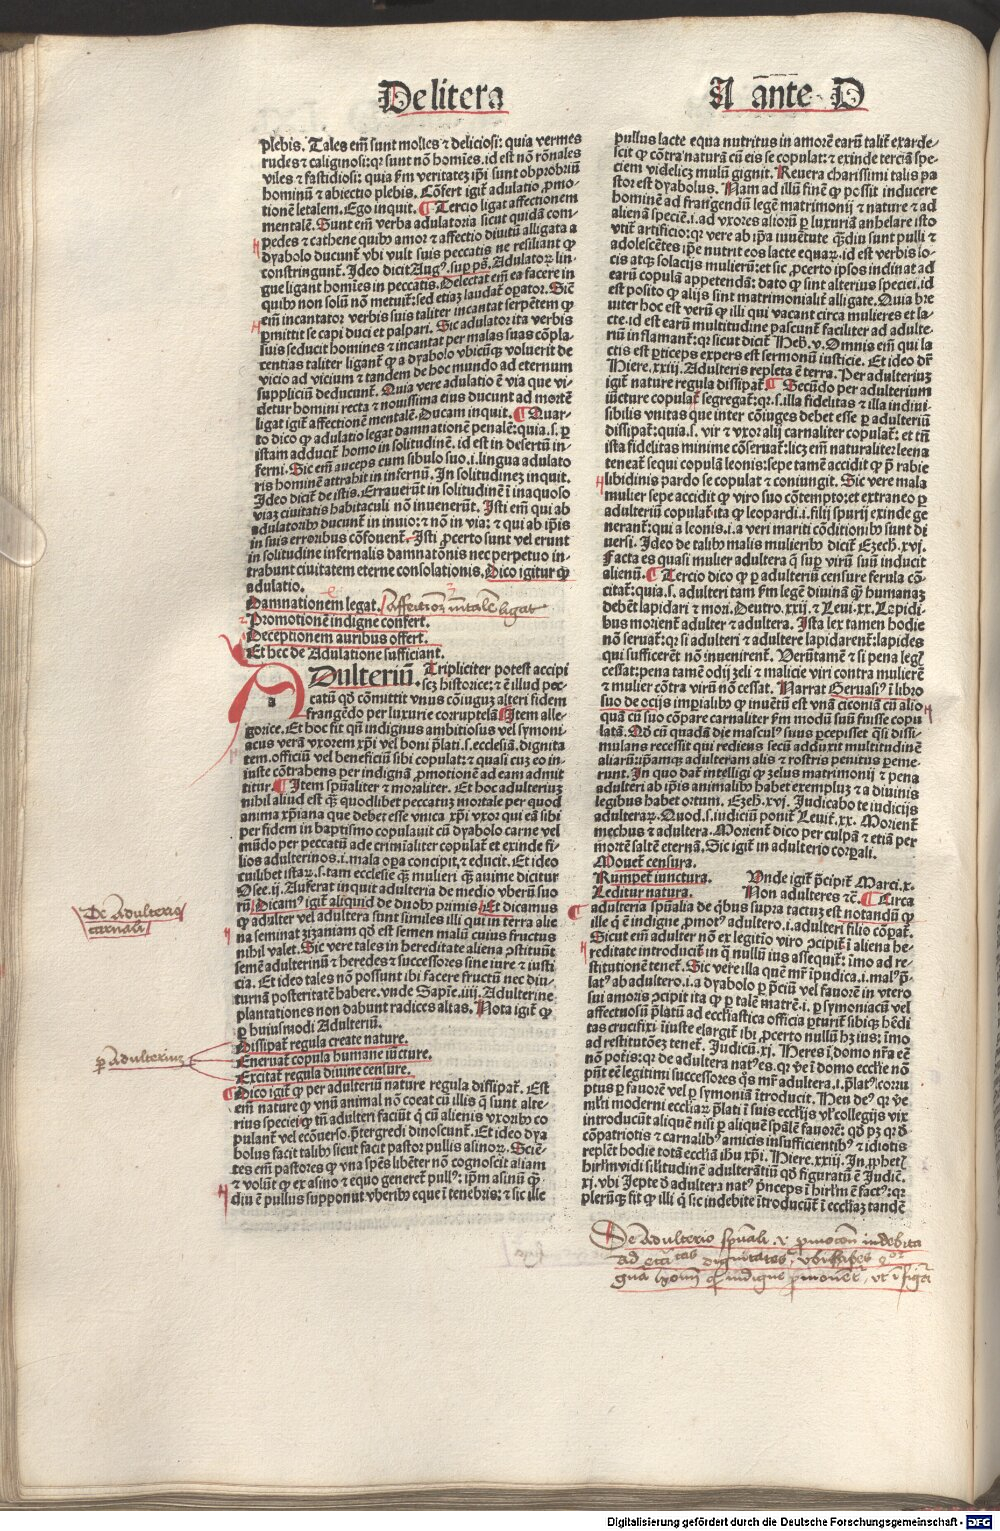 De litera
A ante D
plebis. Tales em̄ sunt molles ⁊ deliciosi: quia vermes
rudes ⁊ caliginosi: qꝛ sunt nō homīes. id est nō rōnales
viles ⁊ fastidiosi: quia ẜm veritatez ip̄i sunt obprobriū
hominū ⁊ abiectio plebis. Cōfert igit̄ adulatio ꝓmo-
tionē letalem. Ego inquit. ¶ Tercio ligat affectionem
mentalē. Sunt em̄ verba adulatoria sicut quidā com-
pedes ⁊ cathene quibꝰ amor ⁊ affectio diuitū alligata a
dyabolo ducunt̄ vbi vult suis peccatis ne resiliant ꝙ
constringunt̄. Ideo dicit Augꝰ. sup̲ pš. Adulatoꝝ lin-
gue ligant homīes in peccatis. Delectat em̄ ea facere in
quibꝰ non solū nō metuit̄: sed etiaz laudat̄ oꝑator. Sic̄
em̄ incantator verbis suis taliter incantat serpētem ꝙ
ꝑmittit se capi duci et palpari. Sic adulator ita verbis
suis seducit homines ⁊ incantat per malas suas cōpla-
centias taliter ligant̄ ꝙ a dyabolo vbicūqꝫ voluerit de
vicio ad vicium ⁊ tandem de hoc mundo ad eternum
suppliciū deducunt̄. Quia vere adulatio ē via que vi-
detur homini recta ⁊ nouissima eius ducunt ad mortē
ligat igit̄ affectionē mentalē. Ducam inquit. ¶ Quar-
to dico ꝙ adulatio legat damnationē penalē: quia .s. ꝑ
istam adducit̄ homo in solitudinē. id est in desertū in-
ferni. Sic em̄ auceps cum sibulo suo .i. lingua adulato
ris hominē attrahit in infernū. In solitudinez inquit.
Ideo dicit̄ de istis. Errauerūt in solitudinē ī inaquoso
viaz ciuitatis habitaculi nō inuenerūt. Isti em̄ qui ab
adulatoribꝰ ducunt̄ in inuio: ⁊ nō in via: ⁊ qui ab ip̄is
in suis erroribus cōfouent̄. Isti ꝓcerto sunt vel erunt
in solitudine infernalis damnatōnis nec perpetuo in-
trabunt ciuitatem eterne consolationis. Dico igitur ꝙ
adulatio.
Damnationem legat. affectionem mētalē ligat
Promotionem indigne confert.
Deceptionem auribus offert.
Et hec de Adulatione sufficiant.
a
Dulteriū. Tripliciter potest accipi
scꝫ historice: ⁊ ē illud pec-
catū qd̄ cōmittit vnus cōiuguz alteri fidem
frangēdo per luxurie corruptelā ¶ Item alle-
gorice. Et hoc fit qn̄ indignus ambitiosus vel symoni-
acus verā vxorem xp̄i vel boni p̄lati .s. ecclesiā. dignita
tem. officiū vel beneficiū sibi copulat: ⁊ quasi cuz eo in-
iuste cōtrahens per indignā ꝓmotionē ad eam admit
titur. ¶ Item spūaliter ⁊ moraliter. Et hoc adulteriuz
nihil aliud est qꝫ quodlibet peccatuz mortale per quod
anima xp̄iana que debet esse vnica xp̄i vxor qui eā sibi
per fidem in baptismo copulauit cū dyabolo carne vel
mūdo per peccatū ade crimialiter copulat̄ et exinde fi-
lios adulterinos .i. mala oꝑa concipit ⁊ educit. Et ideo
cuilibet istaꝝ .s. tam ecclesie qꝫ mulieri qꝫ anime dicitur
Osee .ij. Auferat inquit adulteria de medio vberū suo
rū. Dicamꝰ igit̄ aliquid de duobꝰ primis. Et dicamus
ꝙ adulter vel adultera sunt similes illi qui in terra alie
na seminat zizaniam qd̄ est semen malū cuius fructus
nihil valet. Sic vere tales in hereditate aliena ꝓstituūt
semē adulterinū ⁊ heredes ⁊ successores sine iure ⁊ iusti
cia. Et ideo tales nō possunt ibi facere fructū nec diu-
turnā posteritatē habere. vnde Sapīe .iiij. Adulterine
plantationes non dabunt radices altas. Nota igit̄ ꝙ
ꝑ huiusmodi Adulteriū.
Dissipat̄ regula create nature.
Eneruat̄ copula humane iūcture.
Excitat̄ regula diuine censure.
Dico igit̄ ꝙ per adulteriū nature regula dissipat̄. Est
em̄ nature ꝙ vnū animal nō coeat cū illis q̄ sunt alte-
rius speciei ꝙ tn̄ adulteri faciūt q̄ cū alienis vxoribꝰ co
pulant̄ vel ecōuerso p̄tergredi dinoscunt̄. Et ideo dya
bolus facit talibꝰ sicut facit pastor pullis asinoꝝ. Sciē-
tes em̄ pastores ꝙ vna spēs libēter nō cognoscit aliam
⁊ volūt ꝙ ex asino ⁊ equo generet̄ pullꝰ: ip̄m asinū q̄
diu ē pullus supponūt vberibꝰ eque ī tenebris: ⁊ sic ille
De Adulterio
carnali
ꝑ Adulterium
pullus lacte equa nutritus in amorē earū talit̄ exarde-
scit ꝙ cōtra naturā cū eis se copulat: ⁊ exinde terciā spe-
ciem videlicꝫ mulū gignit. Reuera charissimi talis pa
stor est dyabolus. Nam ad illū finē ꝙ possit inducere
hominē ad frangendū legē matrimonij ⁊ nature ⁊ ad
alienā speciē .i. ad vxores alioꝝ ꝑ luxuriā anhelare isto
vtit̄ artificio: qꝛ vere ab ip̄a iuuētute qꝫdiu sunt pulli ⁊
adolescētes ip̄e nutrit eos lacte equaꝝ. id est verbis lo-
cis atqꝫ solacijs mulierū: et sic ꝓcerto ipsos inclinat ad
earū copulā appetendā: dato ꝙ sint alterius speciei. id
est posito ꝙ alijs sint matrimonialit̄ alligate. Quia bre
uiter hoc est verū ꝙ illi qui vacant circa mulieres et la-
cte. id est earū multitudine pascunt̄ faciliter ad adulte-
riū inflamant̄: qꝛ sicut dicit̄ Heb̄. v. Omnis em̄ qui la
ctis est ꝑticeps expers est sermonū iusticie. Et ideo dr̄
Hiere. xxij. Adulteris repleta ē terra. Per adulteriuz
igit̄ nature regula dissipat̄. ¶ Secūdo per adulterium
iūcture copulat̄ segregat̄: qꝛ .s. illa fidelitas ⁊ illa indiui-
sibilis vnitas que inter cōiuges debet esse ꝑ adulteriū
dissipat̄: quia .s. vir ⁊ vxor alij carnaliter copulat̄: et tn̄
ista fidelitas minime cōseruat̄: licꝫ em̄ naturaliter leena
teneat̄ sequi copulā leonis: sepe tamē accidit ꝙ p̄ rabie
libidinis pardo se copulat ⁊ coniungit. Sic vere mala
mulier sepe accidit ꝙ viro suo cōtempto: et extraneo ꝑ
adulteriū copulat̄ ita ꝙ leopardi .i. filij spurij exinde ge
nerant̄: qui a leonis .i. a veri mariti cōditionibꝰ sunt di
uersi. Ideo de talibꝰ malis mulieribꝰ dicit̄ Ezech. xvj.
Facta es quasi mulier adultera q̄ sup̲ virū suū inducit
alienū. ¶ Tercio dico ꝙ ꝑ adulteriū censure ferula cō-
citat̄: quia .s. adulteri tam ẜm legē diuinā qꝫ humanaz
debēt lapidari ⁊ mori. Deutro. xxij. ⁊ Leui. xx. Lapidi-
bus morient̄ adulter ⁊ adultera. Ista lex tamen hodie
nō seruat̄: qꝛ si adulteri ⁊ adultere lapidarent̄: lapides
qui sufficerēt nō inuenirent̄. Verūtamē ⁊ si pena legꝭ
cessat: pena tamē odij zeli ⁊ malicie viri contra mulierē
⁊ mulier cōtra virū nō cessat. Narrat Geruasiꝰ ī libro
suo de ocijs imꝑialibꝰ ꝙ inuētū est vnā ciconiā cū alio
quā cū suo cōpare carnaliter ẜm modū suū fuisse copu
latā. Qd̄ cū quadā die masculꝰ suus ꝑcepisset q̄si dissi-
mulans recessit qui rediens secū adduxit multitudinē
aliarū: ip̄amqꝫ adulteram alis ⁊ rostris penitus ꝑeme-
runt. In quo dat̄ intelligi ꝙ zelus matrimonij ⁊ pena
adulteri ab ip̄is animalibꝰ habet exempluz ⁊ a diuinis
legibus habet ortum. Ezeh̄. xvj. Judicabo te iudicijs
adulteraꝝ. Quod .s. iudiciū ponit̄ Leuit̄. xx. Morient̄
mechus ⁊ adultera. Morient̄ dico per culpā ⁊ etiā per
mortē salte eternā. Sic igit̄ in adulterio corꝑali.
Mouet̄ censura.
Rumpet̄ iunctura. Vnde igit̄ p̄cipit̄ Marci. x.
Leditur natura. Non adulteres ⁊c̄. ¶ Circa
adulteria spūalia de q̄bus supra tactuz est notandū ꝙ
ille q̄ ē indigne ꝓmotꝰ adultero .i. adulteri filio cōꝑat̄.
Sicut em̄ adulter nō ex legitio viro ꝯcipit̄ ī aliena he-
reditate introducit̄ in q̄ nullū ius assequit̄: īmo ad re-
stitutionē tenet̄. Sic vere illa que mr̄ īpudica .i. malꝰ p̄-
latꝰ ab adultero .i. a dyabolo ꝑ p̄ciū vel fauorē in vtero
sui amoris ꝯcipit ita ꝙ ꝑ talē matrē .i. ꝑ symoniacū vel
affectuosū p̄latū ad eccl̄iastica officia ꝑturit̄ sibiqꝫ hēdi
tas crucifixi īiuste elargit̄ ibi ꝓcerto nullū hꝫ ius: īmo
ad restitutōez tenet̄. Judicū. xj. Heres ī domo nr̄a eē
nō potis: qꝛ de adultera natꝰ es. qꝛ ve ī domo eccl̄ie nō
pn̄t eē legitimi successores q̄s mr̄ adultera .i. p̄latꝰ corru
ptus ꝑ fauorē vel ꝑ symoniā ītroducit. Heu deꝰ qꝛ ve
mr̄i moderni eccl̄iaꝝ p̄lati ī suis eccl̄ijs vl̓ collegijs vix
introducūt aliquē nisi ꝑ aliquē sp̄alē fauorē: qd̄ pꝫ qꝛ d̄
cōpatriotis ⁊ carnalibꝰ amicis insufficientibꝰ ⁊ idiotis
replēt hodie totā eccl̄iā ihu xp̄i. Hiere. xxiij. In ꝓphetꝭ
hirl̄m vidi sīlitudinē adulterātiū qd̄ figuratū ē Judic̄.
xj. vbi Jepte d̄ adultera natꝰ p̄nceps ī hirl̄m ē factꝰ: qꝛ
plerūqꝫ fit ꝙ illi q̄ sic indebite ītroducūt̄ ī eccl̄iaz tandē
De Adulterio spūali ⁊ ꝓmotōne indebita
ad ecc̄tas dignitates, vbi habes
ꝙ indigne ꝓmouent̄
Digitalisierung gefördert durch die Deutsche Forschungsgemeinschaft - DFG